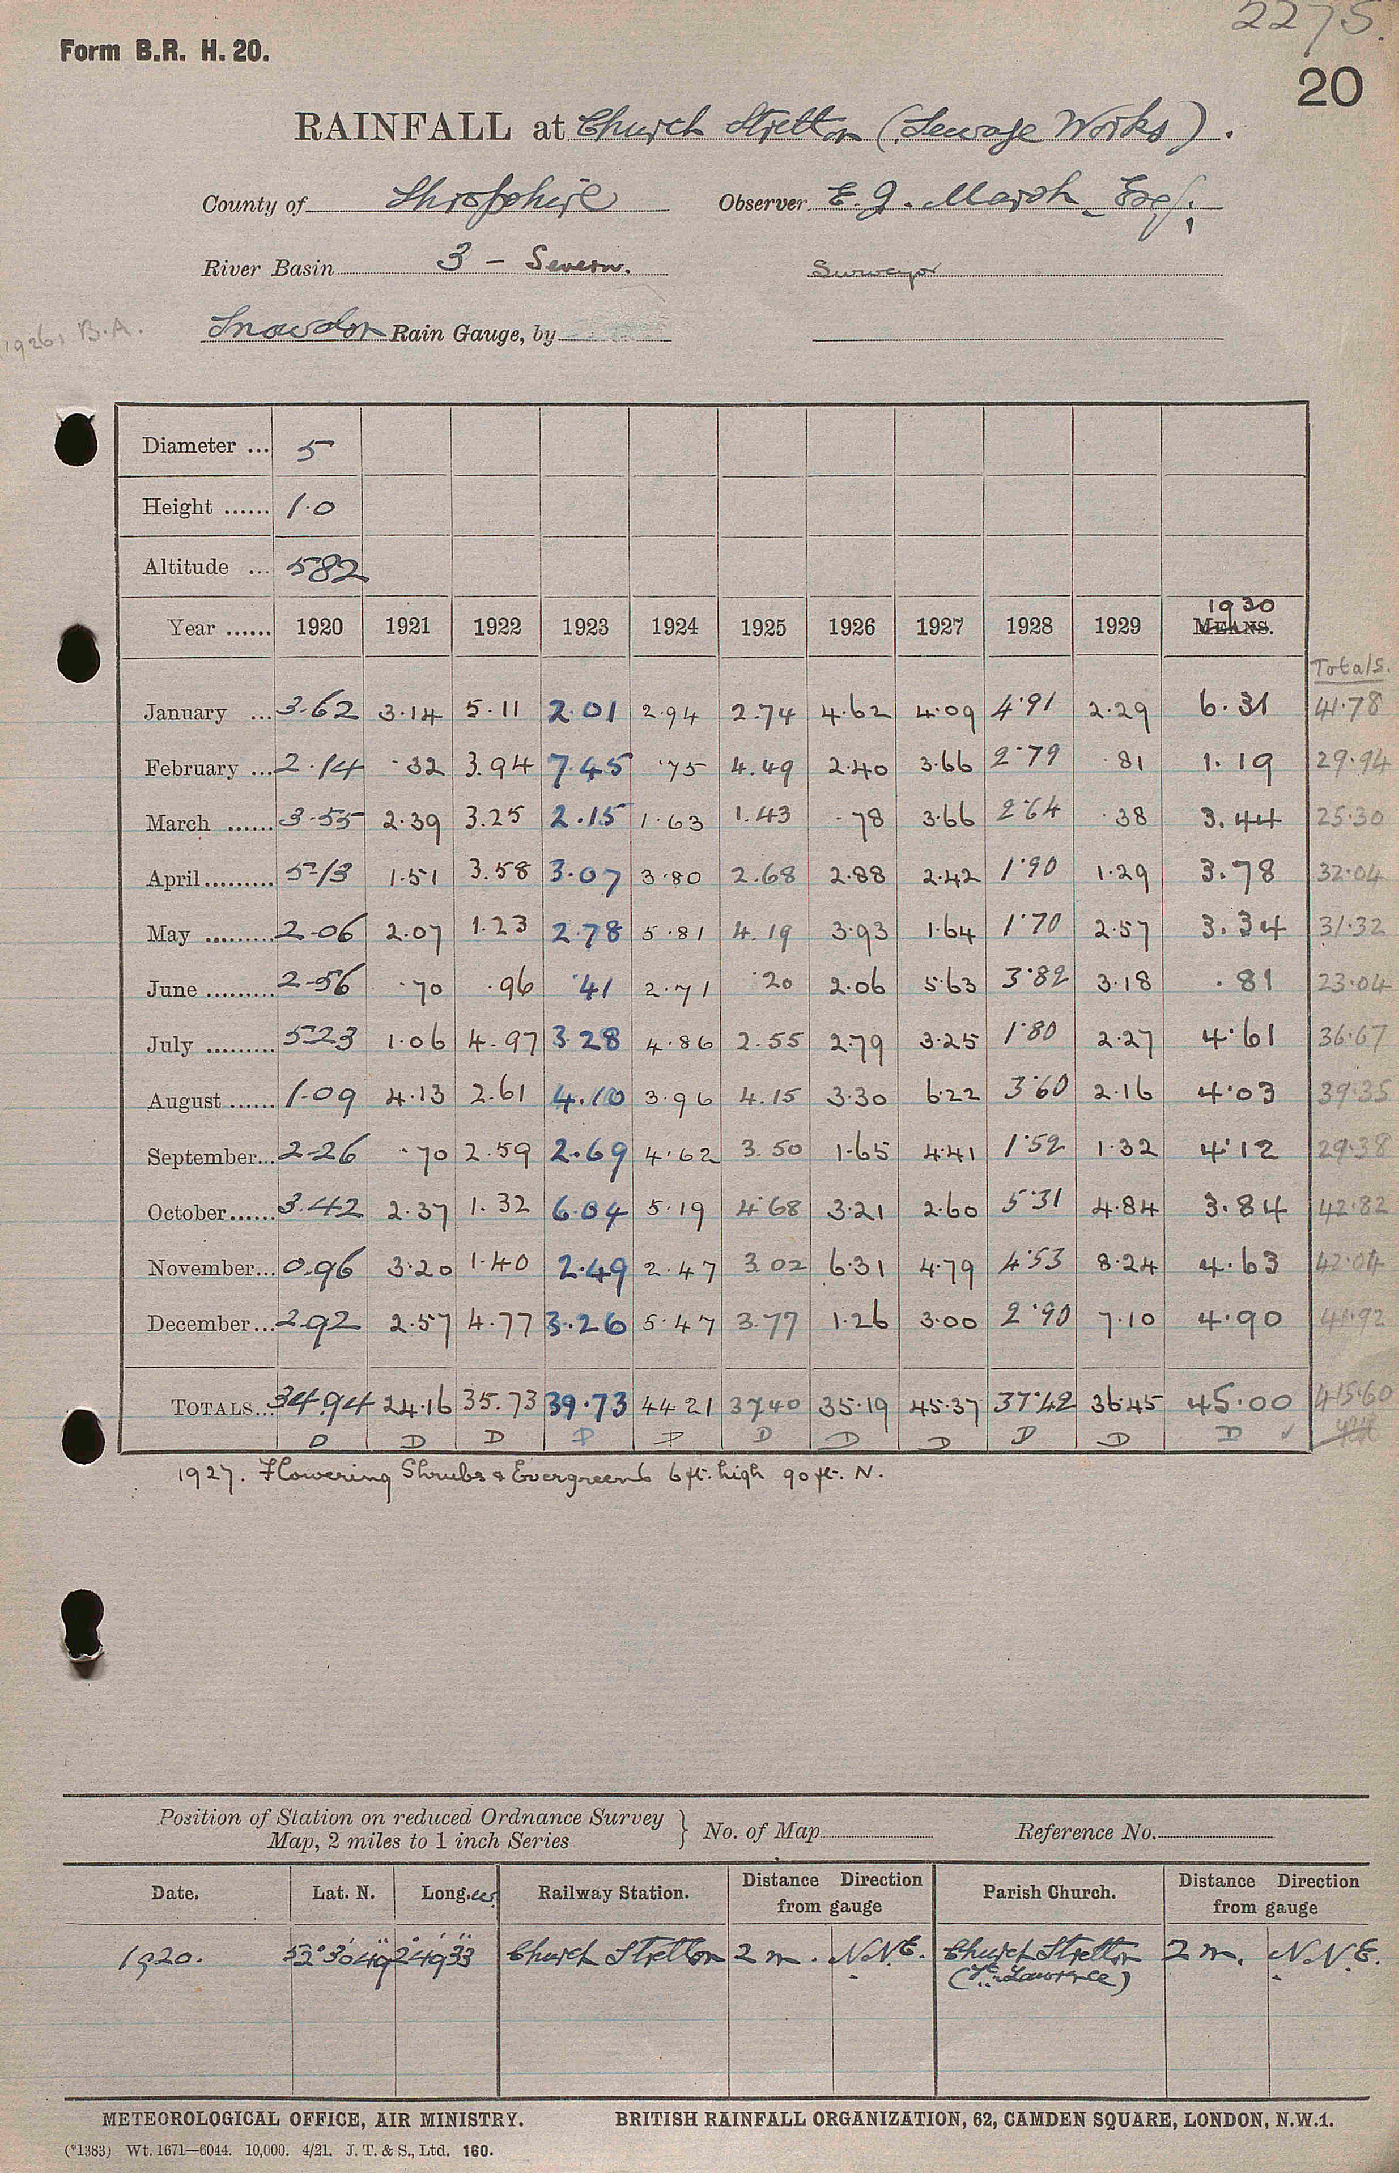 2275.
Form B.R. H. 20.
20
RAINFALL at Church Stretton (Sewage Works).
County of Shropshire Observer E. J. Marsh Esq.,
River Basin 3 - Severn. Surveyor
1926, B.A.
Snowdon Rain Gauge, by
Diameter ... 5
Height ...... 1.0
Altitude ... 582
Year ...... 1920 1921 1922 1923 1924 1925 1926 1927 1928 1929 1930 MEANS.
Totals.
January ... 3.62 3.14 5.11 2.01 2.94 2.74 4.62 4.09 4.91 2.29 6.31 41.78
February ... 2.14 .32 3.94 7.45 .75 4.49 2.40 3.66 2.79 .81 1.19 29.94
March ...... 3.55 2.39 3.25 2.15 1.63 1.43 .78 3.66 2.64 .38 3.44 25.30
April......... 5.13 1.51 3.58 3.07 3.80 2.68 2.88 2.42 1.90 1.29 3.78 32.04
May ......... 2.06 2.07 1.23 2.78 5.81 4.19 3.93 1.64 1.70 2.57 3.34 31.32
June ......... 2.56 .70 .96 .41 2.71 .20 2.06 5.63 3.82 3.18 .81 23.04
July ......... 5.23 1.06 4.97 3.28 4.86 2.55 2.79 3.25 1.80 2.27 4.61 36.67
August ...... 1.09 4.13 2.61 4.10 3.96 4.15 3.30 6.22 3.60 2.16 4.03 39.35
September... 2.26 .70 2.59 2.69 4.62 3.50 1.65 4.41 1.52 1.32 4.12 29.38
October...... 3.42 2.37 1.32 6.04 5.19 4.68 3.21 2.60 5.31 4.84 3.84 42.82
November... 0.96 3.20 1.40 2.49 2.47 3.02 6.31 4.79 4.53 8.24 4.63 42.04
December... 2.92 2.57 4.77 3.26 5.47 3.77 1.26 3.00 2.90 7.10 4.90 41.92
TOTALS... 34.94 24.16 35.73 39.73 44.21 37.40 35.19 45.37 37.42 36.45 45.00 415.60
D D D D D D D D D D D ✓
1927. Flowering Shrubs & Evergreens 6 ft. high 90 ft. N.
Position of Station on reduced Ordnance Survey Map, 2 miles to 1 inch Series } No. of Map Reference No.
Date. Lat. N. Long. W. Railway Station. Distance Direction from gauge Parish Church. Distance Direction from gauge
1920. 52° 30' 49" 2° 49' 33" Church Stretton 2 m. N.N.E. Church Stretton 2 m. N.N.E.
(St. Lawrence)
METEOROLOGICAL OFFICE, AIR MINISTRY. BRITISH RAINFALL ORGANIZATION, 62, CAMDEN SQUARE, LONDON, N.W.1.
(*1383) Wt. 1671—6044. 10,000. 4/21. J. T. & S., Ltd. 160.